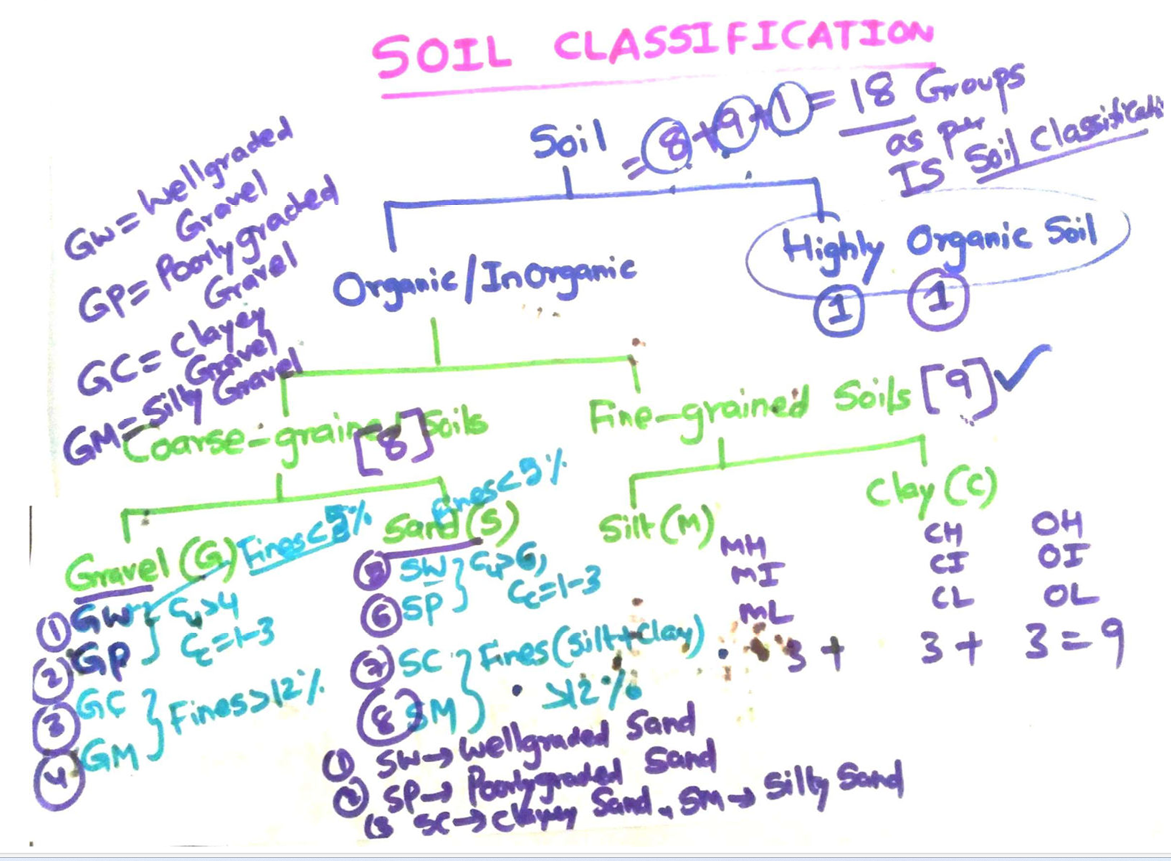 SOIL CLASSIFICATION
Soil = 8+9+1 = 18 Groups
as per
IS Soil Classificati
GW= Wellgraded
Gravel
GP= Poorlygraded
Gravel
GC= Clayey
Gravel
GM= Silty Gravel
Organic/InOrganic
Highly Organic Soil
1 1
Coarse-grained Soils
[8]
Fine-grained Soils [9] ✓
Gravel (G) Fines<5%
Sand (S) Fines<5%
Silt(M)
Clay(C)
1 GW
2 GP
Cu>4
Cc=1-3
3 GC
4 GM
Fines>12%
5 SW
6 SP
Cu>6,
Cc=1-3
7 SC
8 SM
Fines(Silt+Clay)
>12%
MH CH OH
MI CI OI
ML CL OL
3+ 3+ 3=9
(1) SW→Wellgraded Sand
(2) SP→ Poorlygraded Sand
(3 SC→Clayey Sand, SM→ Silty Sand